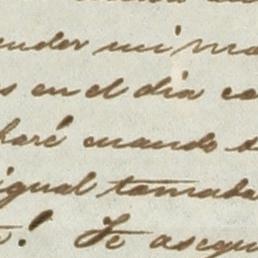 ender mi ma
s en el dia co
haré cuando s
igual tomada
! Te asegu